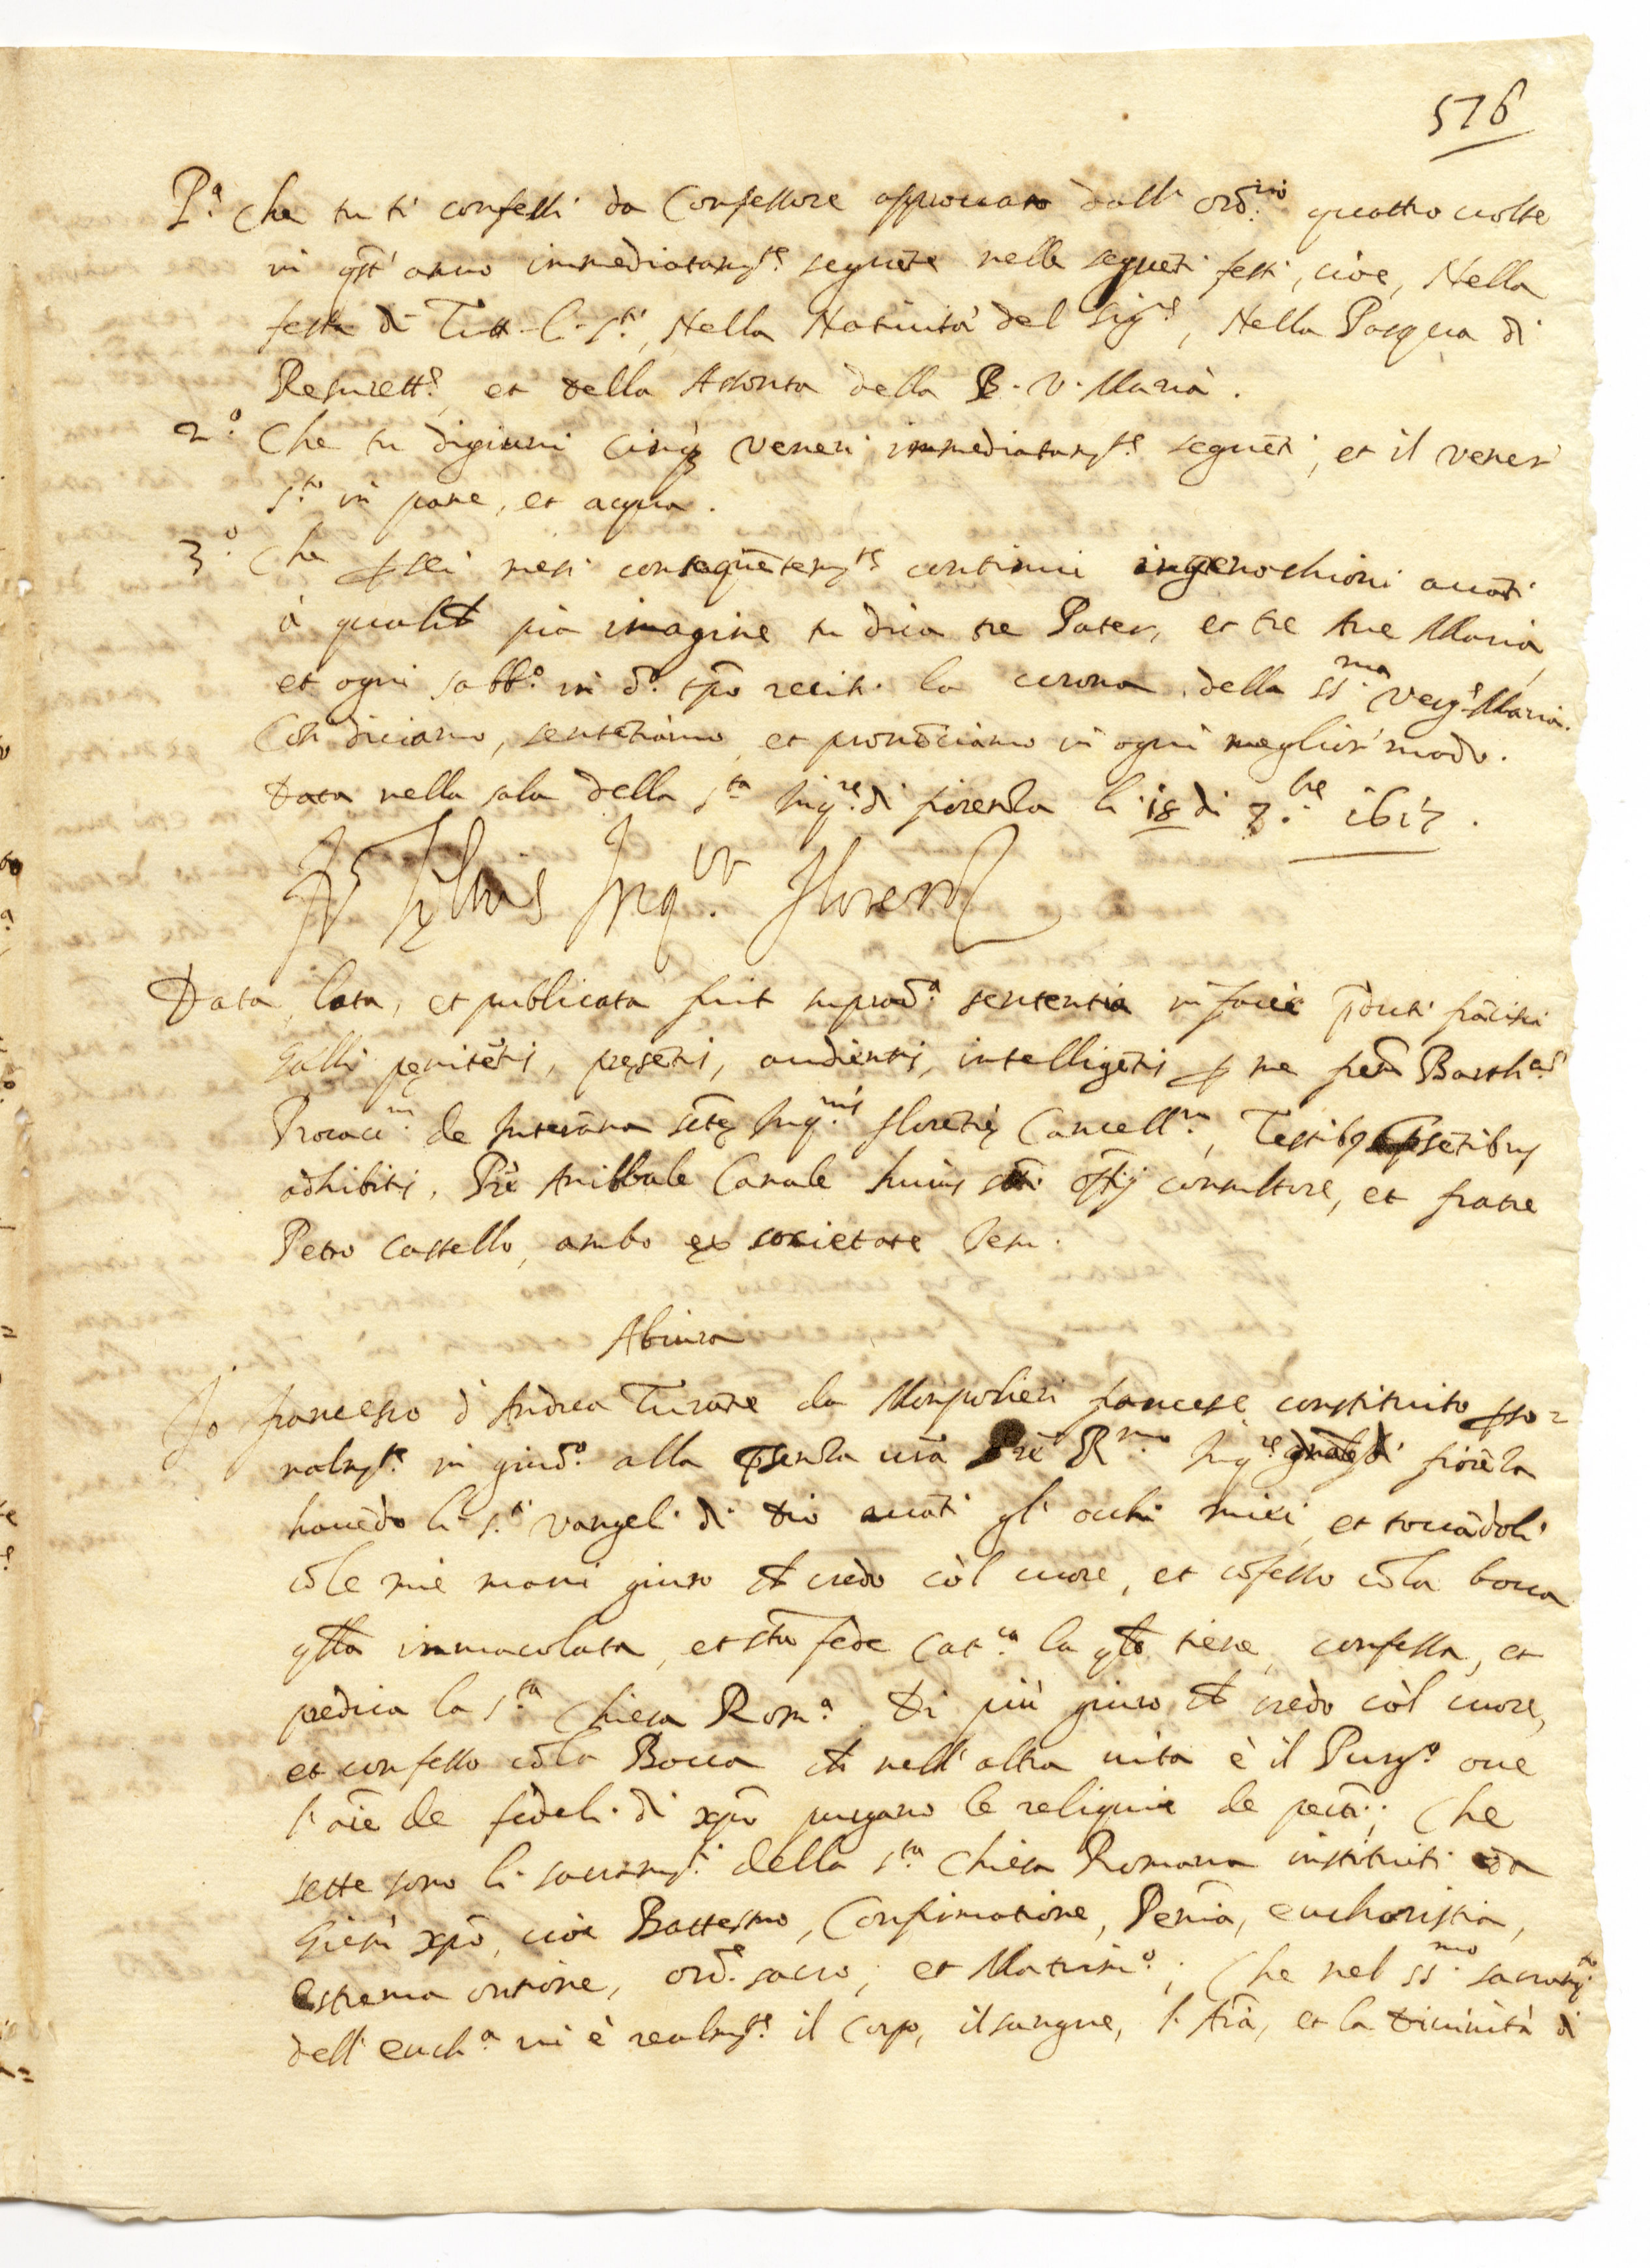 576
P.ª Che tu ti confessi da Confessore approuato dall' ord.rio quattro uolte
in q̃st' anno immediatam.te seguẽte nelle seguẽti festi, cioe, Nella
festa di Tutt. li s.ti, Nella Natiuità del Sig.re, Nella Pasqua di
Resurett.e, et della Assonta della B. V. Maria.
2.º Che tu digiuni cinq; Veneri immediatam.te seguẽti, et il vener'
s.to in pane, et acqua.
3.º Che p sei mesi consequẽtem.te continui ingenochioni auãti
à qualche pia imagine tu dica tre Pater, et tre Aue Maria,
et ogni sabb.º in d.º tp̃o reciti la corona della ss.ma Verg.e Maria.
Cosi diciamo, sentẽtiamo et pronũciamo in ogni meglior' modo.
Data nella sala della s.ta Inq.ne di fiorenza li 18 di 7.bre 1617.
Inq.or Floren
Data, lata, et publicata fuit suprad.ª sententia in faciẽ p̃douti frãcisci
Galli penitẽtis, presẽtis, audientis, intelligẽtis p me frẽm Barth.
de Interãna sctę Inq.nis florẽtię Cancell.m, Testibq; p̃sẽtibus
adhibitis, Prẽ Anibbale Canale huius sti offij consultore, et fratre
Petro Castello, ambo ex societate Jesu.
Abiura
Io francesco d' Andrea da Monpolieri francese constituito p̃so=
nalm.te in giud.º alla p̃senza urã Prẽ R.mo Inq.re gñale di fiorẽza
hauẽdo li s.ti vangeli di Dio auãti gl' occhi miei et toccãdoli
cõ le mie mani giuro che credo còl cuore, et cõfesso cõ la bocca
q̃lla immacolata, et sta fede Cat.ca la q̃le tiene, confessa, et
predica la s.ta Chiesa Rom.ª Di più giuro che credo còl cuore,
et confesso cõ la Bocca che nell' altra uita è il Purg.º oue
l' aĩe de fideli di xp̃o purgano le reliquie de pecti; Che
sette sono li sacram.ti della s.ta Chiesa Romana instituiti da
Giesù xp̃o, cioè Battesmo, Confirmatione, Penĩa, eucharistia,
Estrema ontione, ord.e sacro, et Matrim.º; Che nel ss.mo sacram.to
dell' euch.ª ui è realm.te il Corpo, il sangue, l' Aĩa, et la Diuinità di